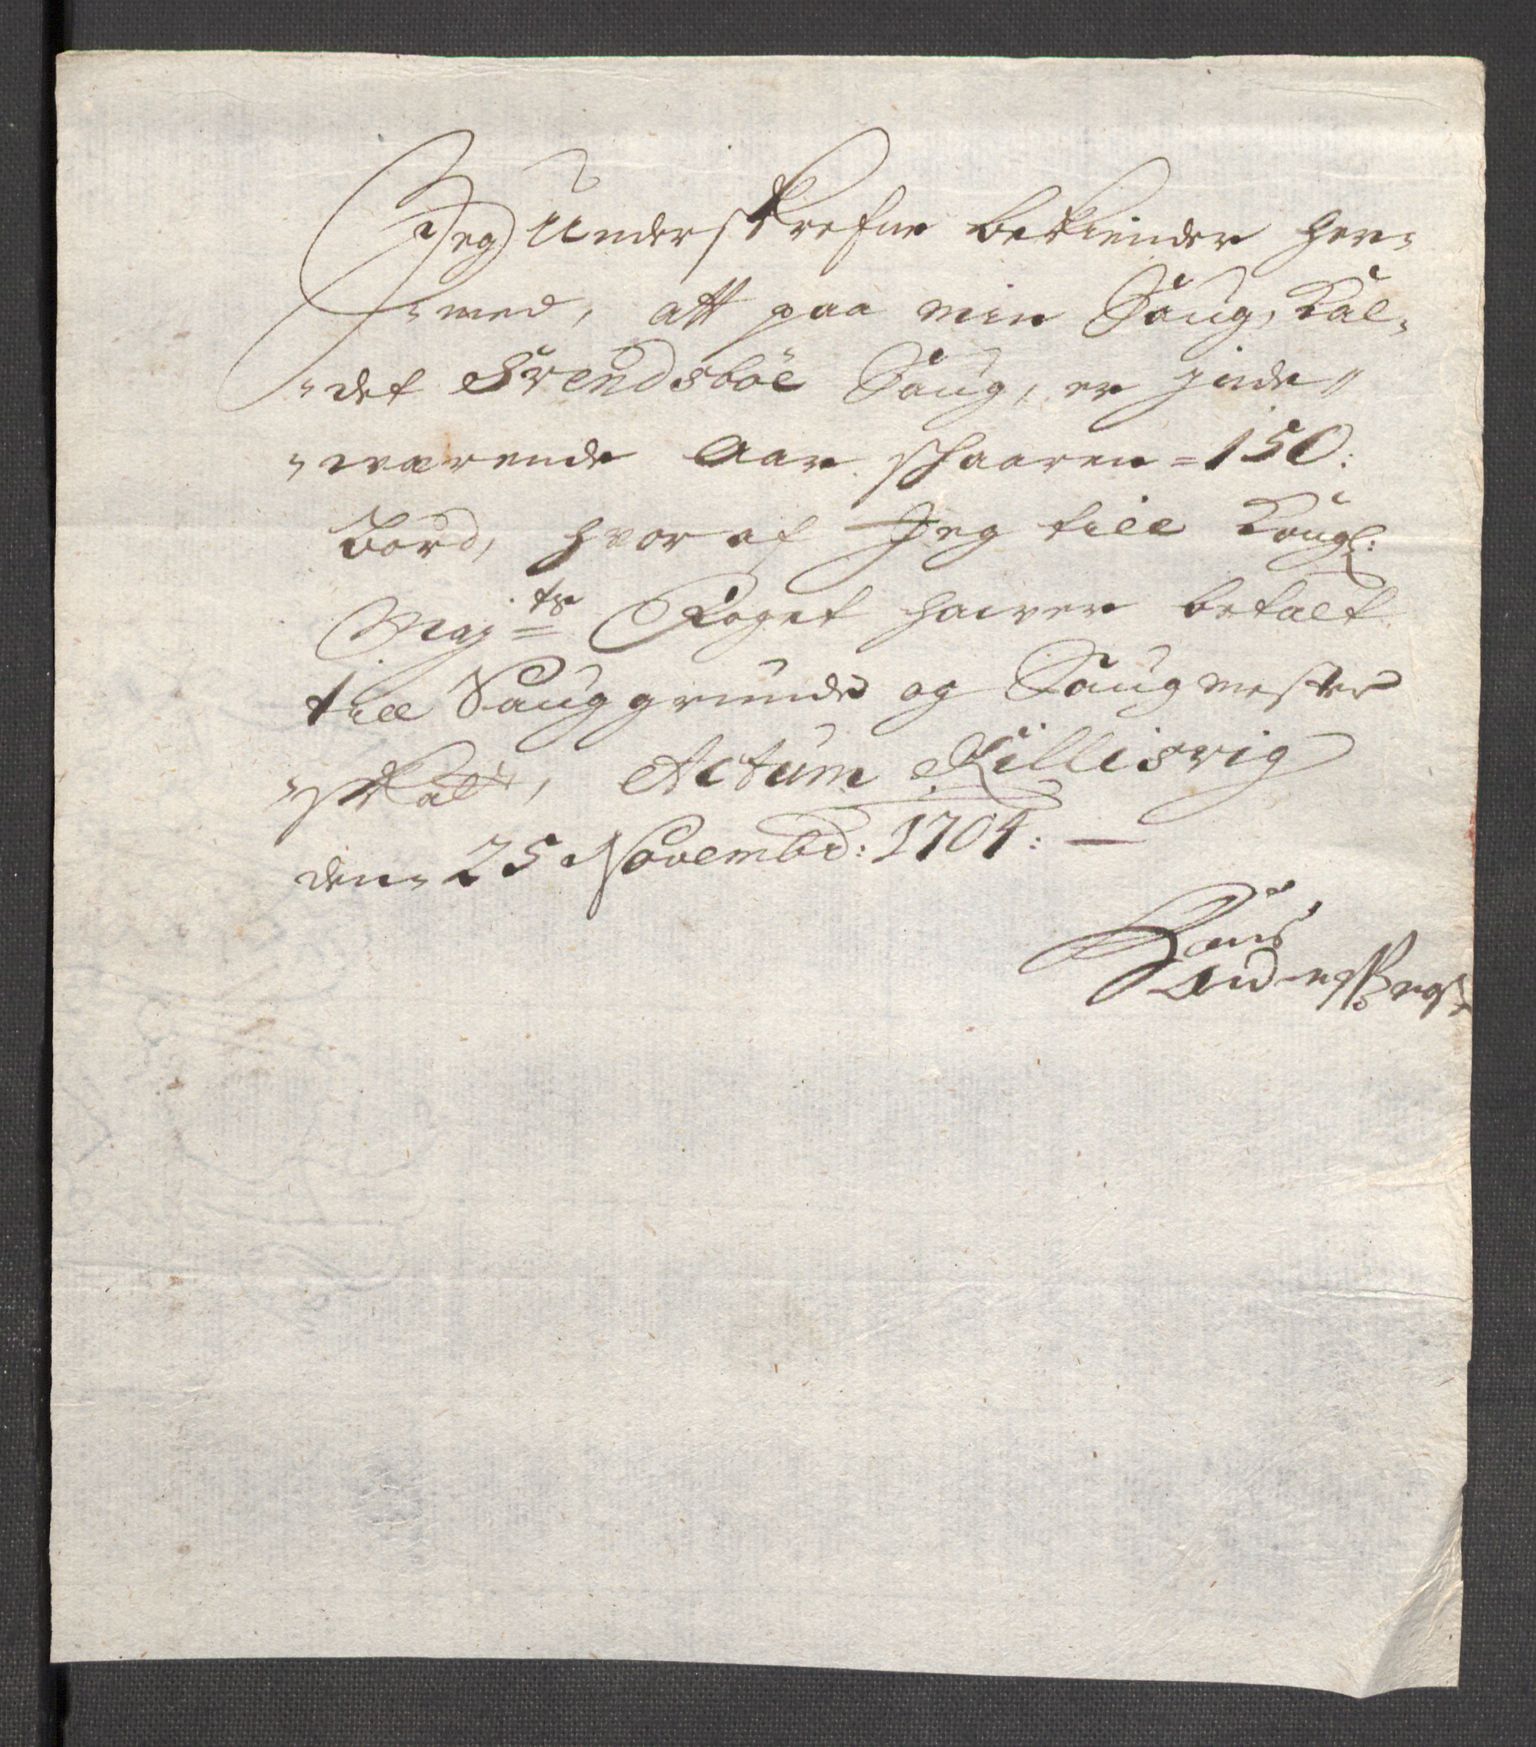 Jeg Underskrefne bekiender her-
-med, att paa min Saug, Kal-
-det Svendsböe Saug, er inde-
-værende Aar schaaren = 150:
Bord, hvor af Jeg till Kongl:
Maj:ts Foget haiver betalt
till Sauggrunds og Saugmester
-skatt, Actum Killisvig
den 25 Novembr: 1704: —
Hans